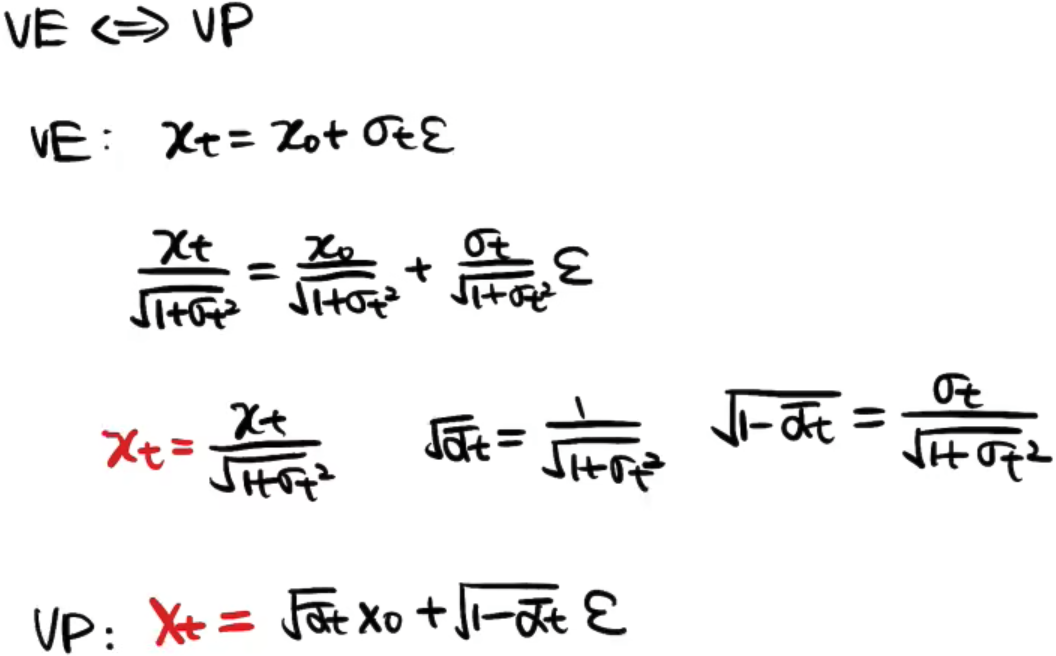 VE ⟺ VP
VE: xₜ = x₀ + σₜ ε
xₜ/√(1+σₜ²) = x₀/√(1+σₜ²) + σₜ/√(1+σₜ²) ε
xₜ = xₜ/√(1+σₜ²) √ᾱₜ = 1/√(1+σₜ²) √(1-ᾱₜ) = σₜ/√(1+σₜ²)
VP: xₜ = √ᾱₜ x₀ + √(1-ᾱₜ) ε